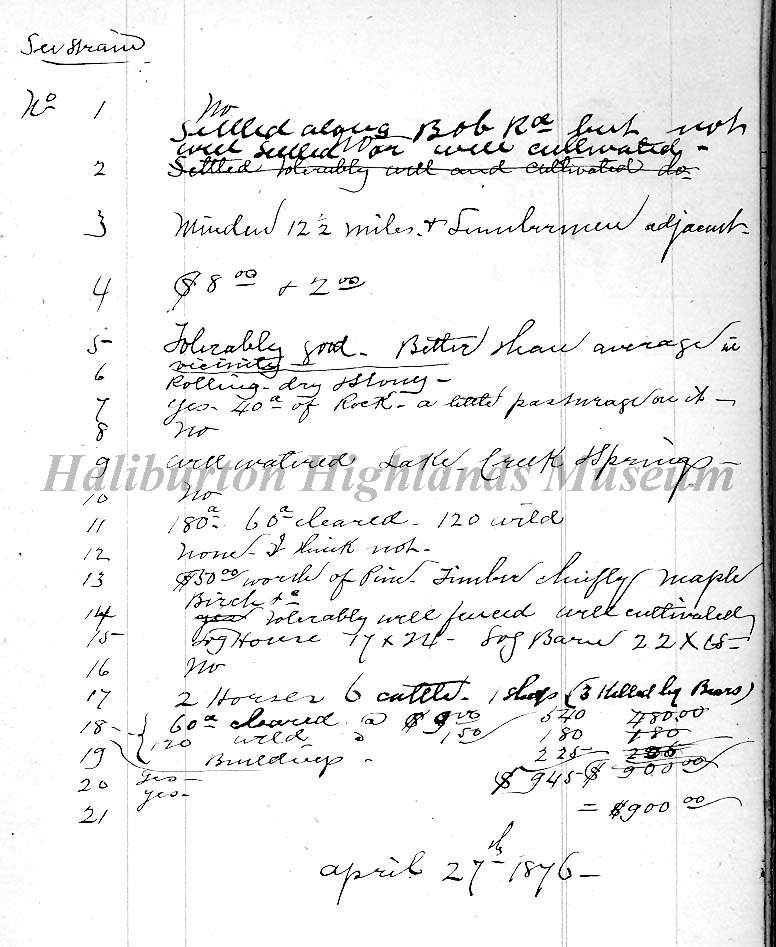 No 1 No
Settled along Bob Rd but not
well settled or well cultivated -
2 Settled tolerably well and cultivated do
3 Minden 12 1/2 miles. & Lumbermen adjacent -
4 $8 00 & 2 00
5 Tolerably good - Better than average in
vicinity
6 Rolling - dry & Stony -
7 Yes - 40 a of Rock - a little pasturage on it -
8 No
9 well watered Lake Creek & Springs -
Haliburton Highlands Museum
10 No
11 180 a 60 a cleared - 120 wild
12 None - I think not -
13 $50 00 worth of Pine - Timber chiefly Maple
Birch &c
14 yes tolerably well fenced well cultivated
15 Log House 17 x 24 - Log Barn 22 x
16 No
17 2 Horses 6 cattle - 1 sheep (3 killed by Bears)
18 60 a cleared @ $9 00 540 480.00
120 wild " 1.50 180 180
19 Buildings - 225
20 yes - $945 $900 00
21 yes - = $900 00
April 27th 1876 -